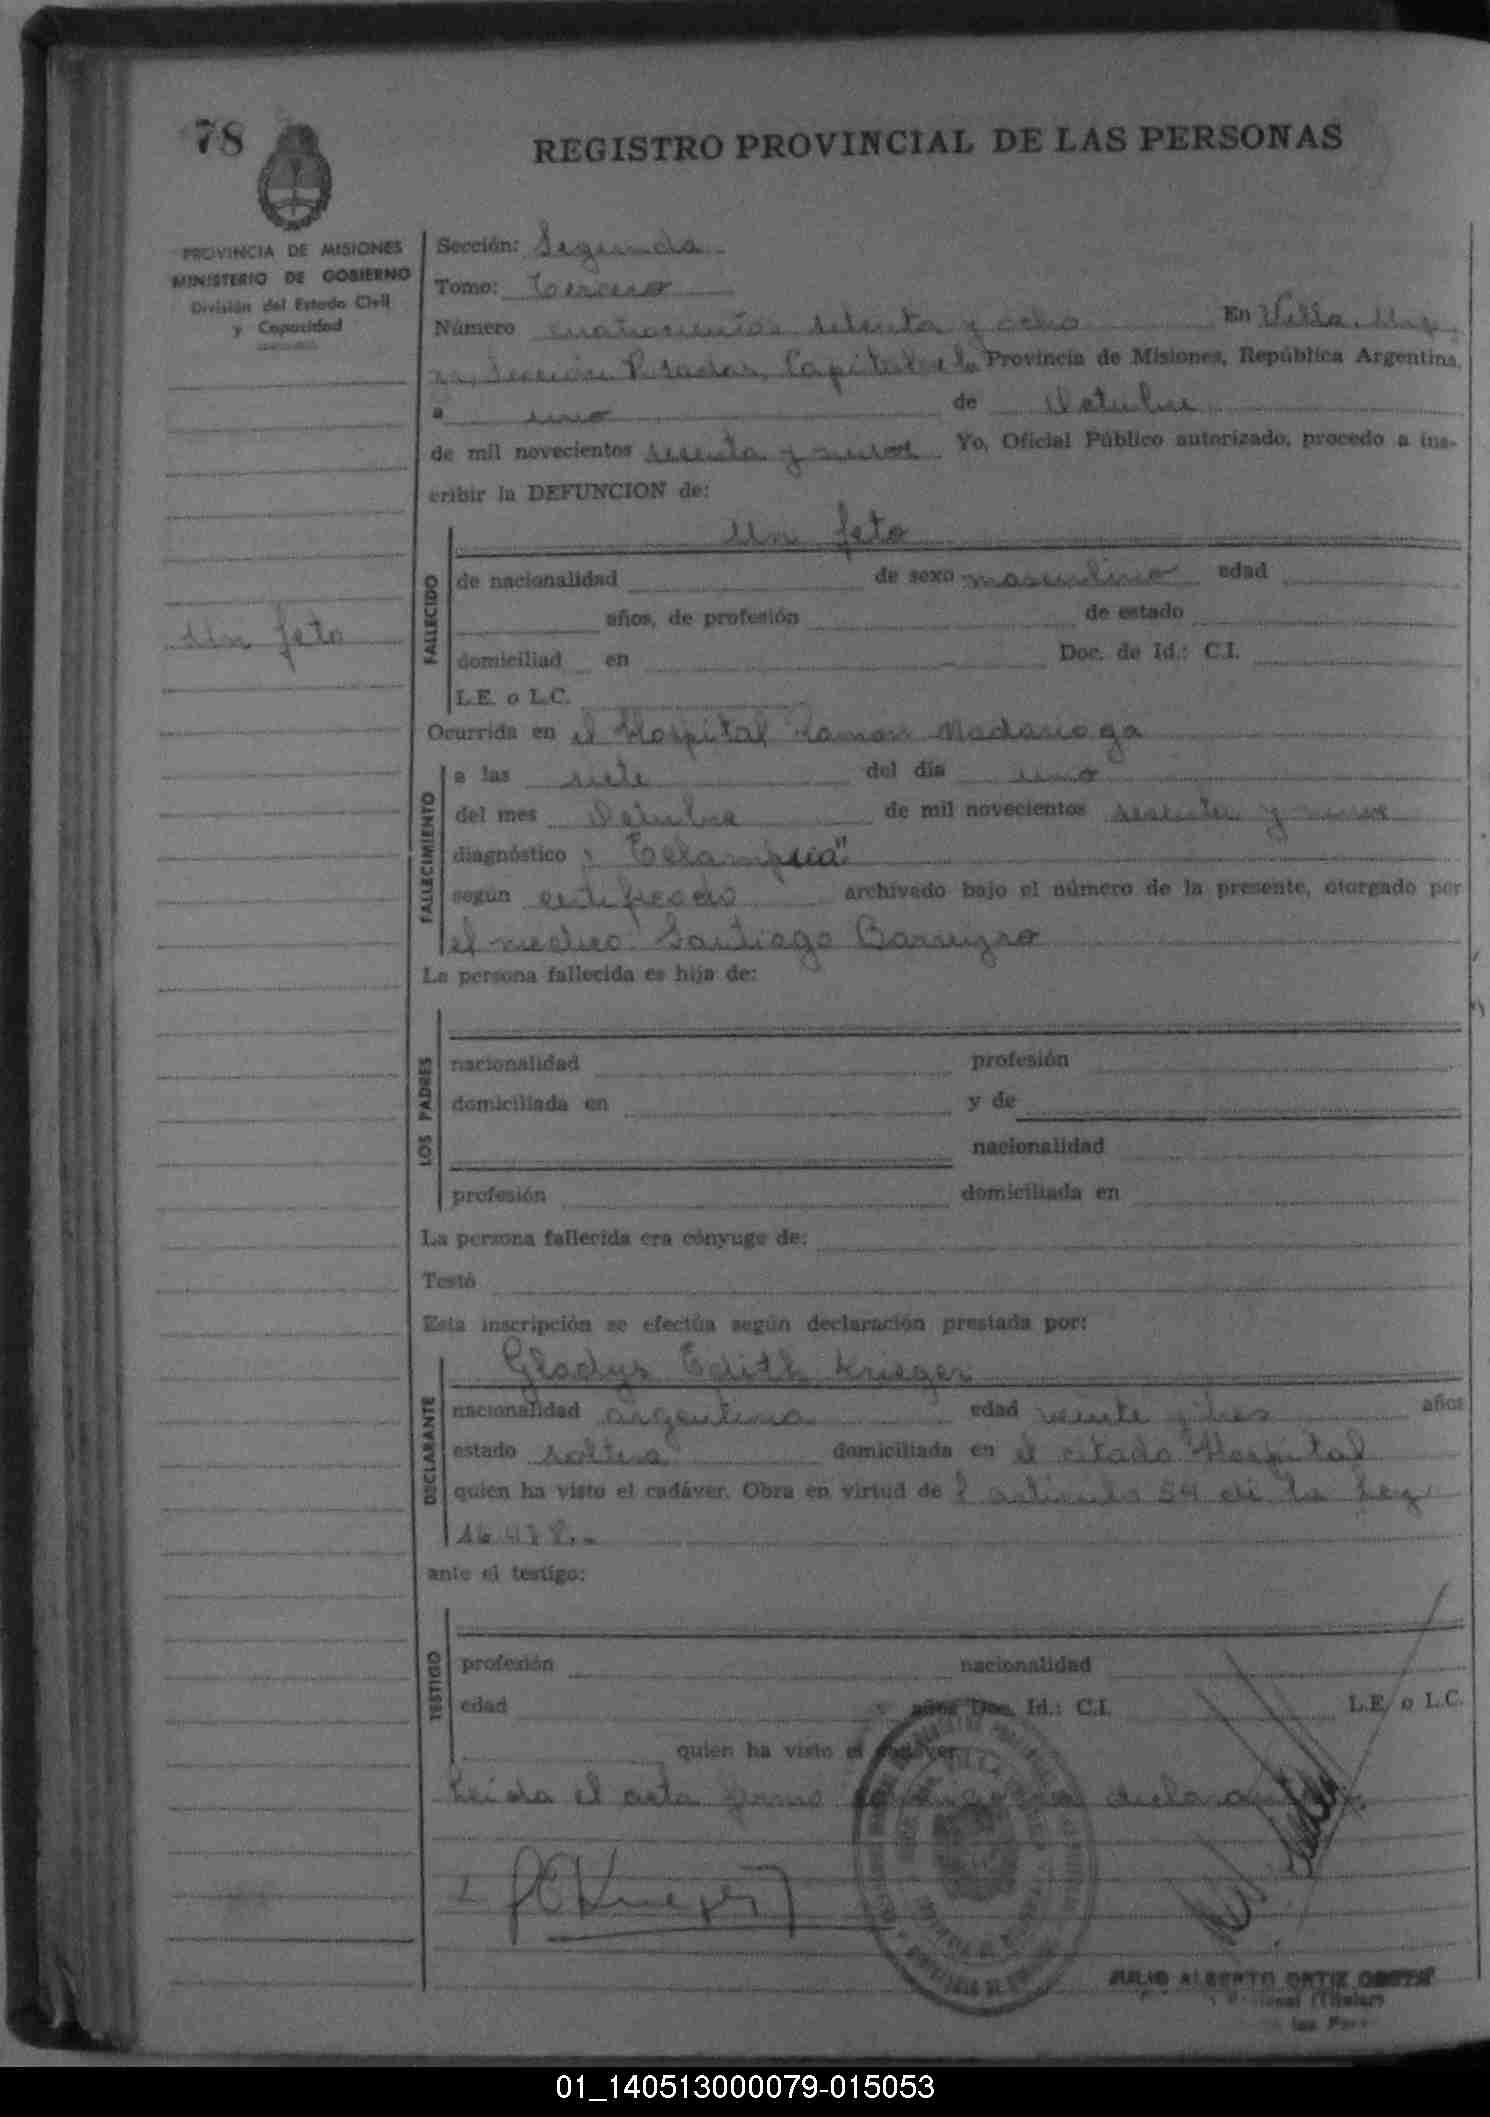 78
REGISTRO PROVINCIAL DE LAS PERSONAS
PROVINCIA DE MISIONES
MINISTERIO DE GOBIERNO
División del Estado Civil
y Capacidad
Sección: Segunda
Tomo: Tercero
Número cuatrocientos setenta y ocho En Villa Urqui
za, Sección Posadas, Capital de la Provincia de Misiones, República Argentina,
a uno de Octubre
de mil novecientos sesenta y nueve Yo, Oficial Público autorizado, procedo a ins-
cribir la DEFUNCION de:
Un feto
Un feto
FALLECIDO
de nacionalidad de sexo masculino edad
años, de profesión de estado
domiciliad en Doc. de Id.: C.I.
L.E. o L.C.
Ocurrida en el Hospital Ramon Madariaga
FALLECIMIENTO
a las siete del día uno
del mes Octubre de mil novecientos sesenta y nueve
diagnóstico "Eclampsia"
según certificado archivado bajo el número de la presente, otorgado por
el medico Santiago Barreyro
La persona fallecida es hija de:
LOS PADRES
nacionalidad profesión
domiciliada en y de
nacionalidad
profesión domiciliada en
La persona fallecida era cónyuge de:
Testó
Esta inscripción se efectúa según declaración prestada por:
DECLARANTE
Gladys Edith Krieger
nacionalidad argentina edad veinte y tres años
estado soltera domiciliada en el citado Hospital
quien ha visto el cadáver. Obra en virtud de l articulo 54 de la Ley
16.478.-
ante el testigo:
TESTIGO
profesión nacionalidad
edad años Doc. Id.: C.I. L.E. o L.C.
quien ha visto el cadáver.
Leida el acta firma declarante.
JULIO ALBERTO ORTIZ
(Titular)
01_140513000079-015053